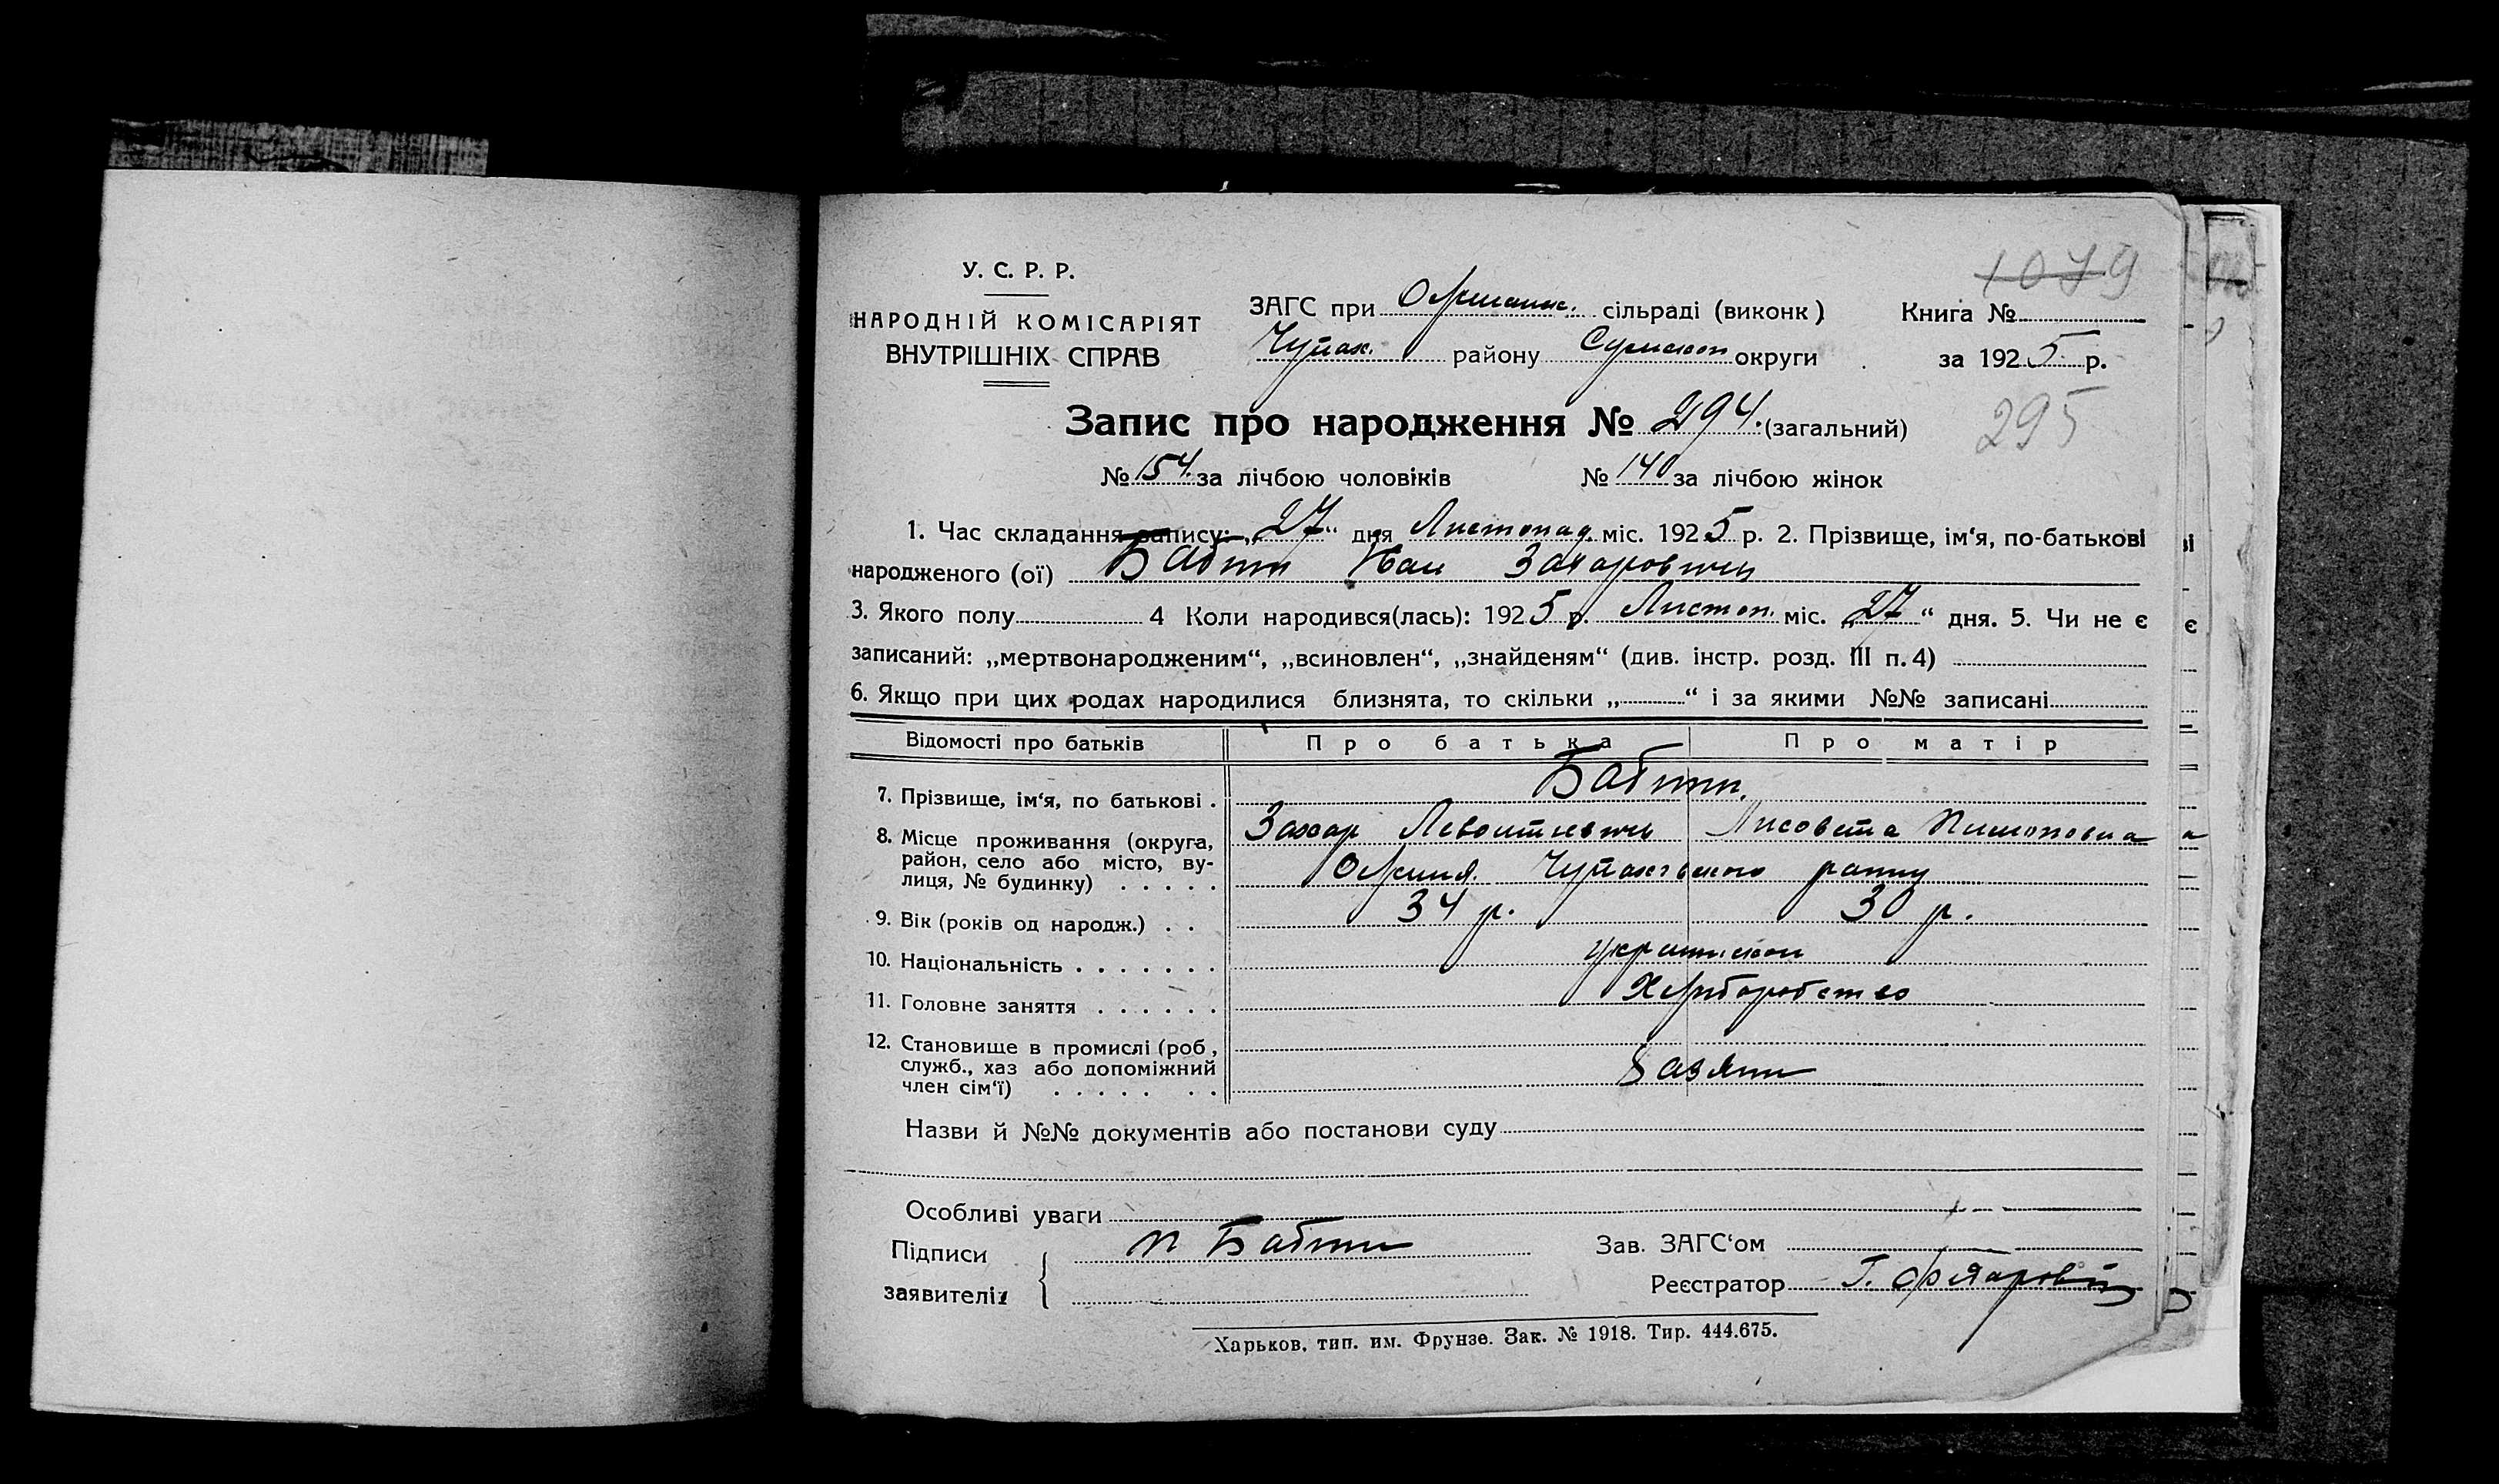 1079
У. С. Р. Р.
НАРОДНІЙ КОМІСАРІЯТ
ВНУТРІШНІХ СПРАВ
ЗАГС при Олешанськ. сільраді (виконк)
Чупах. району Сумської округи
Книга №
за 1925 р.
Запис про народження № 294. (загальний)
295
№ 154. за лічбою чоловіків № 140 за лічбою жінок
1. Час складання запису: „27“ дня Листопад. міс. 1925 р. 2. Прізвище, ім‘я, по-батькові
народженого (ої) Бабич Іван Захарович
3. Якого полу 4 Коли народився(лась): 1925 р. Листоп. міс. „27“ дня. 5. Чи не є
записаний: „мертвонародженим“, „всиновлен“, „знайденям“ (див. інстр. розд. III п. 4)
6. Якщо при цих родах народилися близнята, то скільки „ “ і за якими №№ записані
Відомості про батьків Про батька Про матір
7. Прізвище, ім‘я, по батькові . Бабич.
Захар Лисовета
8. Місце проживання (округа,
район, село або місто, ву-
лиця, № будинку) . . . . . Олешня. Чупахівського району
9. Вік (років од народж.) . . 34 р. 30 р.
10. Національність . . . . . . .
11. Головне заняття . . . . . . Хліборобство
12. Становище в промислі (роб,
служб., хаз або допоміжний
член сім‘ї) . . . . . . . Хазяїн
Назви й №№ документів або постанови суду
Особливі уваги
Підписи
заявителів
Бабич
Зав. ЗАГС‘ом
Реєстратор
Харьков, тип. им. Фрунзе. Зак. № 1918. Тир. 444.675.